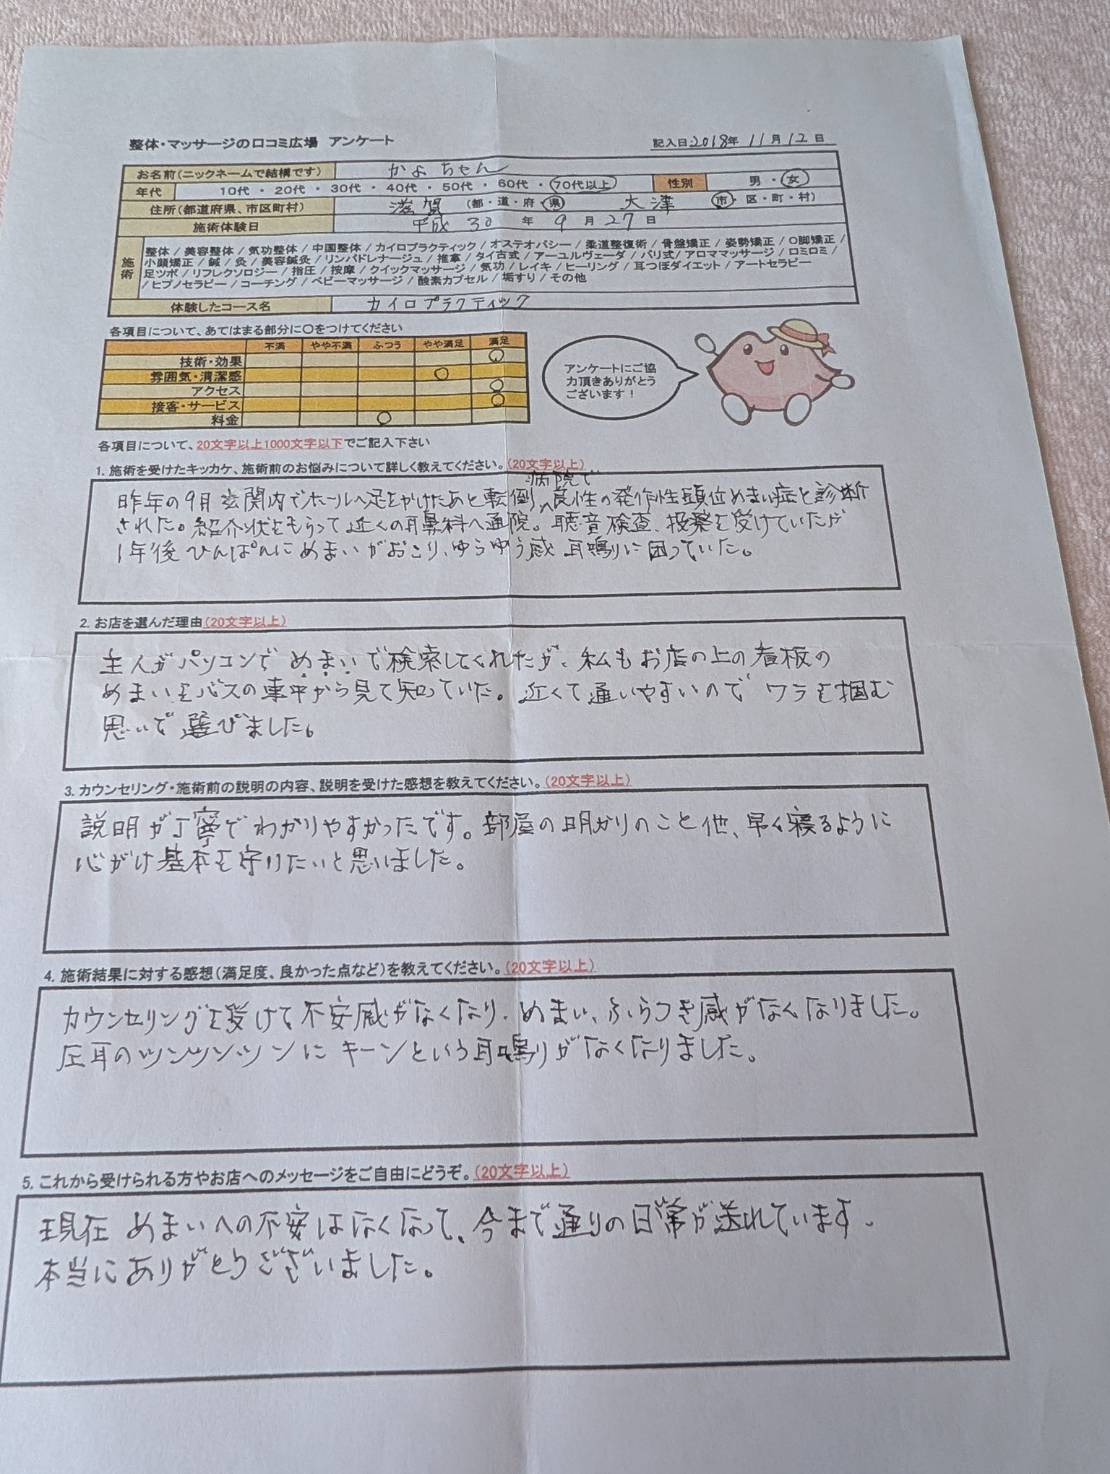 整体・マッサージの口コミ広場 アンケート
記入日:2018年 11月 12日
お名前(ニックネームで結構です) かよちゃん
年代 10代 ・ 20代 ・ 30代 ・ 40代 ・ 50代 ・ 60代 ・ 70代以上 性別 男 ・ 女
住所(都道府県、市区町村) 滋賀 (都・道・府・県) 大津 (市・区・町・村)
施術体験日 平成 30 年 9 月 27 日
施術
整体 / 美容整体 / 気功整体 / 中国整体 / カイロプラクティック / オステオパシー / 柔道整復術 / 骨盤矯正 / 姿勢矯正 / O脚矯正 /
小顔矯正 / 鍼 / 灸 / 美容鍼灸 / リンパドレナージュ / 推拿 / タイ古式 / アーユルヴェーダ / バリ式/ アロママッサージ / ロミロミ /
足ツボ / リフレクソロジー / 指圧 / 按摩 / クイックマッサージ / 気功 / レイキ / ヒーリング / 耳つぼダイエット / アートセラピー
/ ヒプノセラピー / コーチング / ベビーマッサージ / 酸素カプセル / 垢すり / その他
体験したコース名 カイロプラクティック
各項目について、あてはまる部分に〇をつけてください
不満 やや不満 ふつう やや満足 満足
技術・効果 〇
雰囲気・清潔感 〇
アクセス 〇
接客・サービス 〇
料金 〇
アンケートにご協
力頂きありがとう
ございます！
各項目について、20文字以上1000文字以下でご記入下さい
1. 施術を受けたキッカケ、施術前のお悩みについて詳しく教えてください。(20文字以上)
病院で
昨年の9月玄関内でホールへ足をかけたあと転倒、良性の発作性頭位めまい症と診断
された。紹介状をもらって近くの耳鼻科へ通院。聴音検査、投薬を受けていたが
1年後ひんぱんにめまいがおこり、ゆらゆら感 耳鳴りに困っていた。
2. お店を選んだ理由(20文字以上)
主人がパソコンでめまいで検索してくれたが、私もお店の上の看板の
めまいをバスの車中から見て知っていた。近くて通いやすいので ワラを掴む
思いで選びました。
3. カウンセリング・施術前の説明の内容、説明を受けた感想を教えてください。(20文字以上)
説明が丁寧でわかりやすかったです。部屋の明かりのこと他、早く寝るように
心がけ基本を守りたいと思いました。
4. 施術結果に対する感想(満足度、良かった点など)を教えてください。(20文字以上)
カウンセリングを受けて不安感がなくなり、めまい、ふらつき感がなくなりました。
左耳のツンツンツンに キーンという耳鳴りがなくなりました。
5. これから受けられる方やお店へのメッセージをご自由にどうぞ。(20文字以上)
現在 めまいへの不安はなくなって、今まで通りの日常が送れています。
本当にありがとうございました。